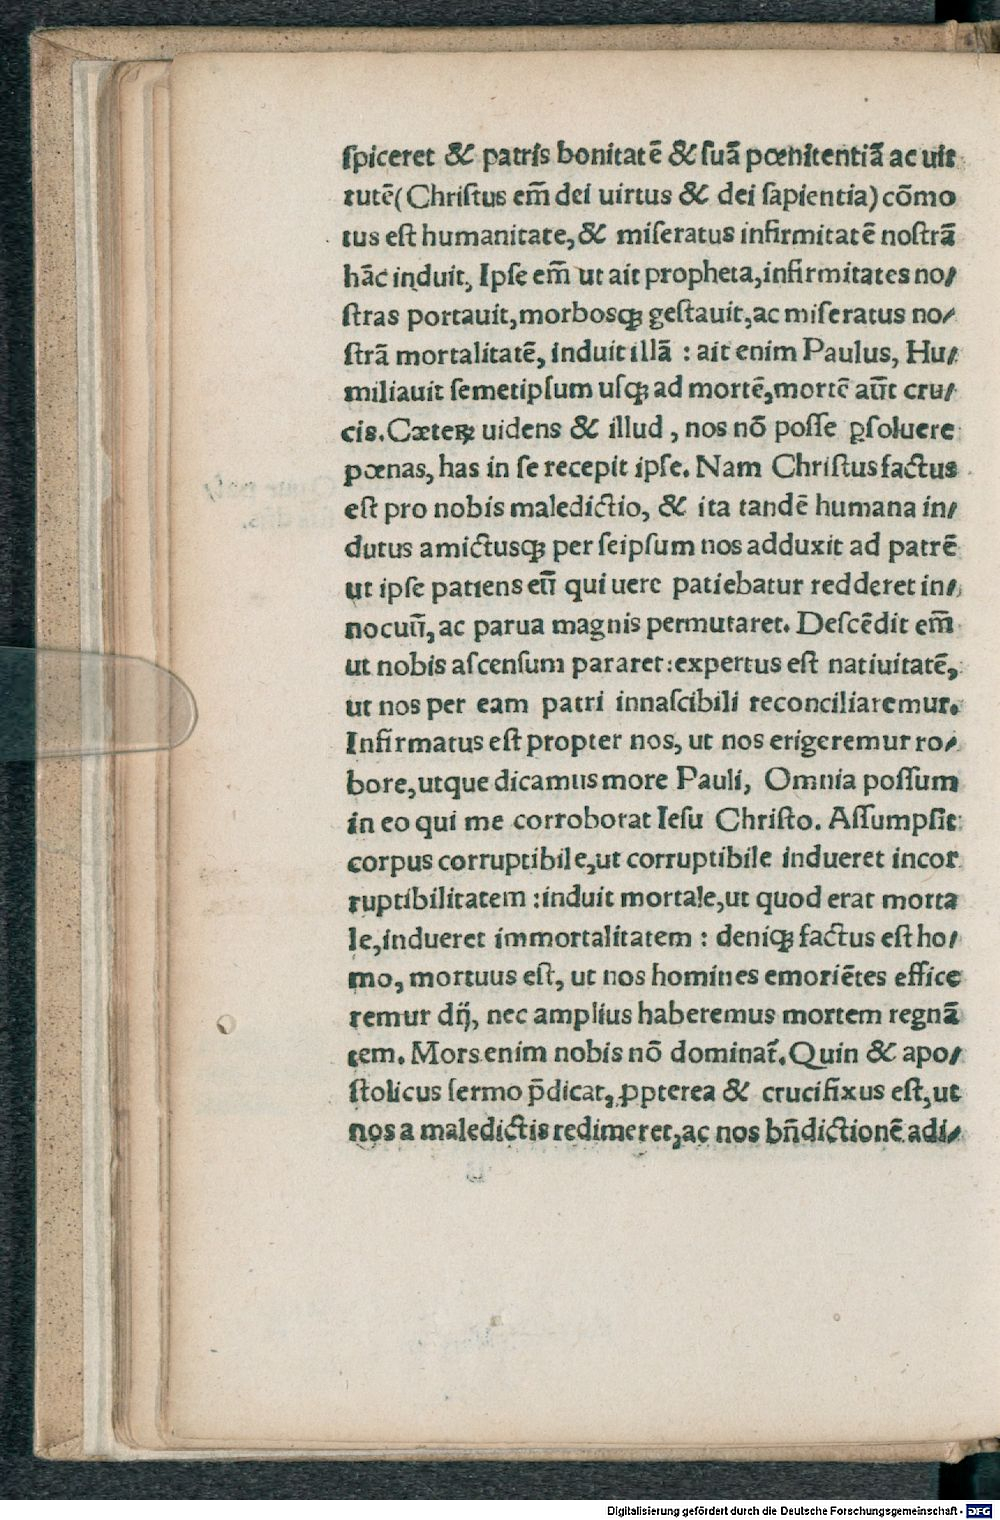 spiceret & patris bonitatē & suā pœnitentiā ac uir
tutē(Christus em̄ dei uirtus & dei sapientia)cōmo
tus est humanitate,& miseratus infirmitatē nostrā
hāc induit, Ipse em̄ ut ait propheta,infirmitates no⸗
stras portauit,morbosqꝫ gestauit,ac miseratus no⸗
strā mortalitatē, induit illā : ait enim Paulus, Hu⸗
miliauit semetipsum usqꝫ ad mortē,mortē aūt cru⸗
cis.Cæteꝝ uidens & illud , nos nō posse ꝑsoluere
pœnas, has in se recepit ipse. Nam Christus factus
est pro nobis maledictio, & ita tandē humana in⸗
dutus amictusqꝫ per seipsum nos adduxit ad patrē
ut ipse patiens eū qui uere patiebatur redderet in⸗
nocuū, ac parua magnis permutaret. Descēdit em̄
ut nobis ascensum pararet:expertus est natiuitatē,
ut nos per eam patri innascibili reconciliaremur.
Infirmatus est propter nos, ut nos erigeremur ro⸗
bore,utque dicamus more Pauli, Omnia possum
in eo qui me corroborat Iesu Christo. Assumpsit
corpus corruptibile,ut corruptibile indueret incor
ruptibilitatem :induit mortale,ut quod erat morta
le,indueret immortalitatem : deniqꝫ factus est ho⸗
mo, mortuus est, ut nos homines emoriētes effice
remur dij, nec amplius haberemus mortem regnā
tem. Mors enim nobis nō dominat᷑. Quin & apo⸗
stolicus sermo p̄dicat, ꝓpterea & crucifixus est,ut
nos a maledictis redimeret,ac nos bn̄dictionē adi⸗
Digitalisierung gefördert durch die Deutsche Forschungsgemeinschaft - DFG